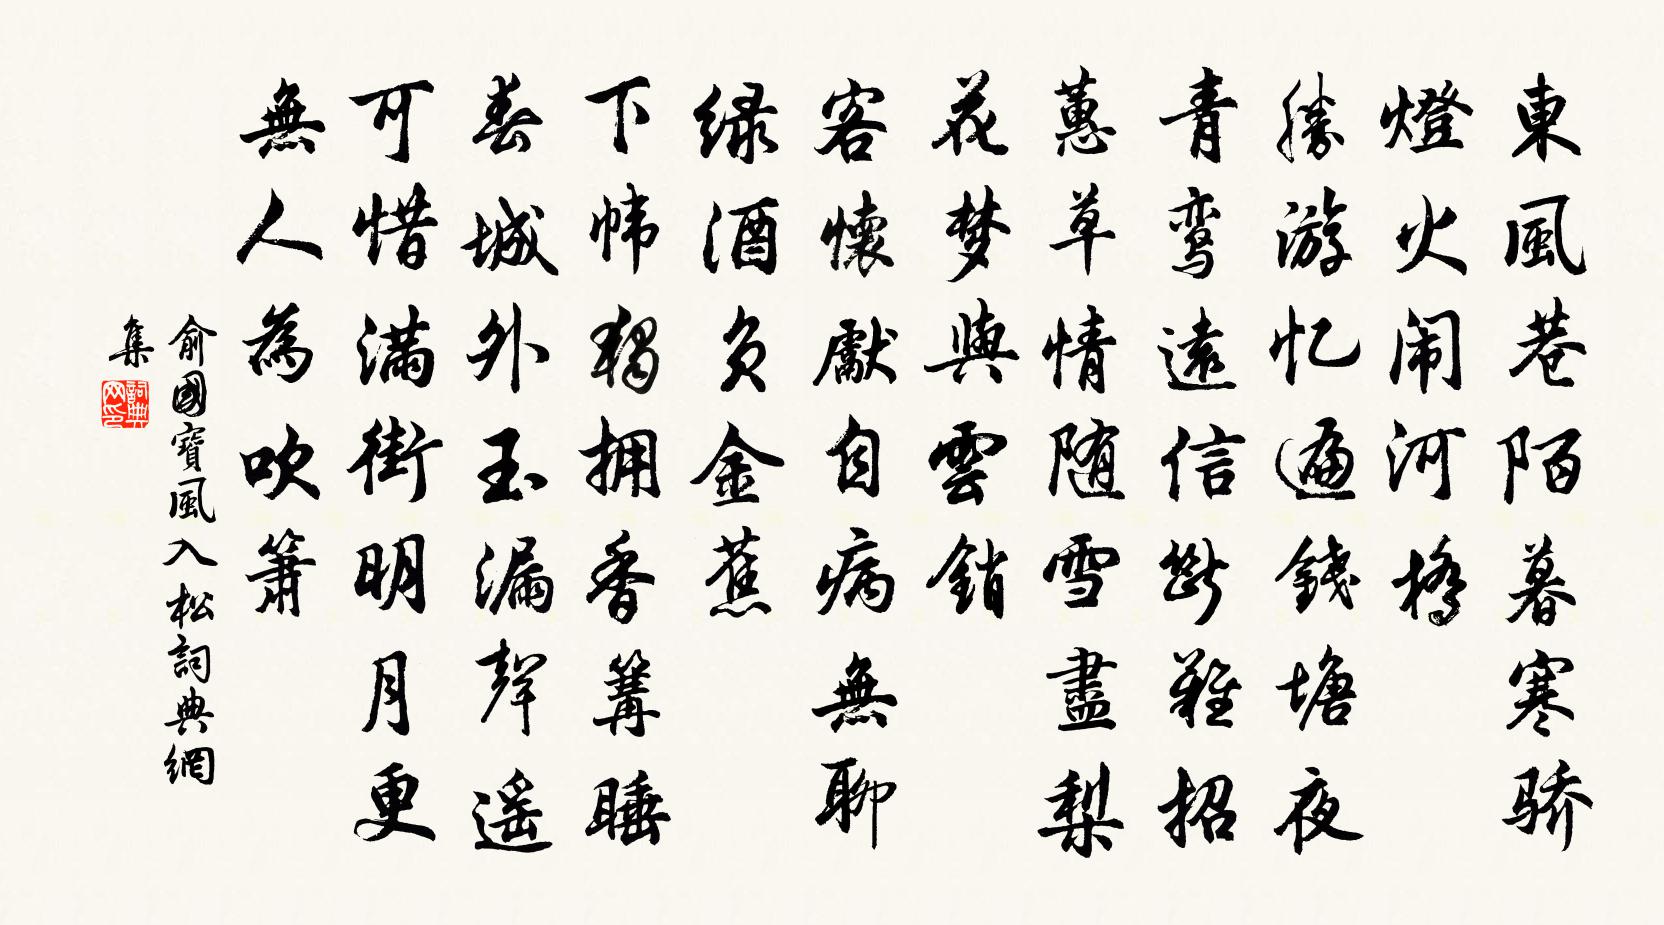 東風巷陌暮寒骄
燈火闹河橋
勝游忆遍錢塘夜
青鸾遠信斷難招
蕙草情随雪盡梨
花梦與雲銷
客懷獻自病無聊
绿酒负金蕉
下帏独拥香篝睡
春城外玉漏聲遥
可惜满街明月更
無人為吹簫
俞國寶風入松詞典網
集
詞典网印